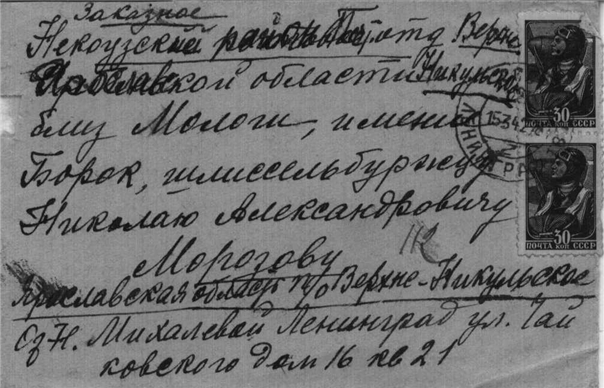 Заказное
Некоузский район Почта Верхне
Ярославской области Никульское
близ Мологи, имение
Борок, шлиссельбуржцу
Николаю Александровичу
Морозову
Ярославская область п/о Верхне-Никульское
От Н. Михалевой Ленинград ул. Чай
ковского дом 16 кв 21
112
30
ПОЧТА КОП СССР
30
ПОЧТА КОП СССР